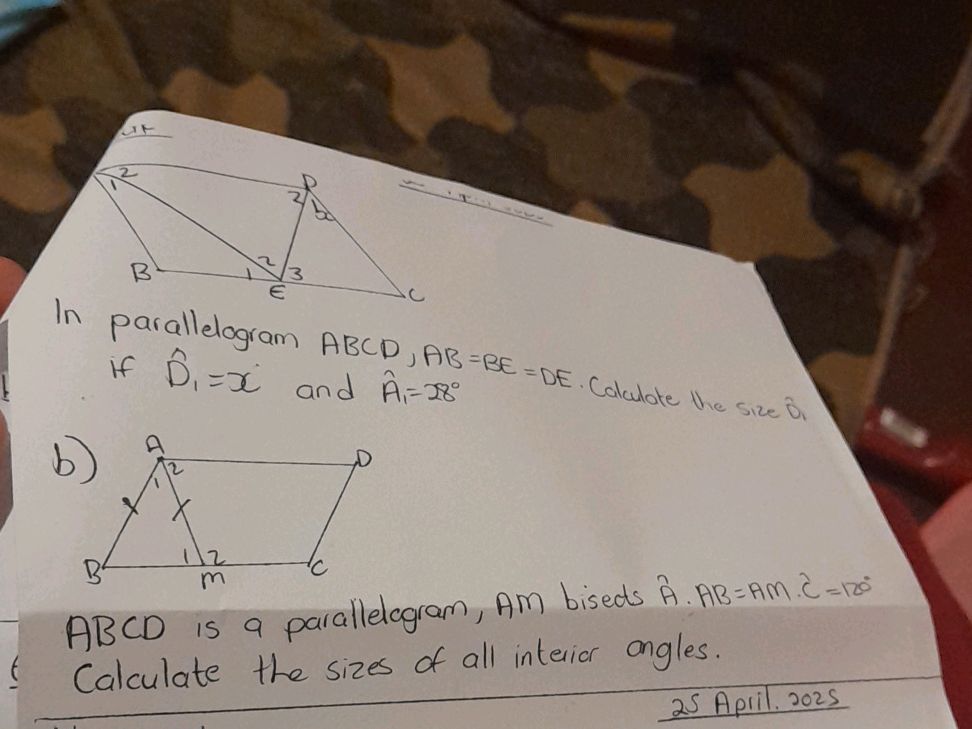 1 2
D
2
x
B
1 2 3
E
C
In parallelogram ABCD, AB=BE=DE. Calculate the size D̂₁
if D̂₁=x and Â₁=28°
b)
A
D
2
1
1 2
B
m
C
ABCD is a parallelogram, AM bisects Â. AB=AM. Ĉ=120°
Calculate the sizes of all interior angles.
25 April. 2025